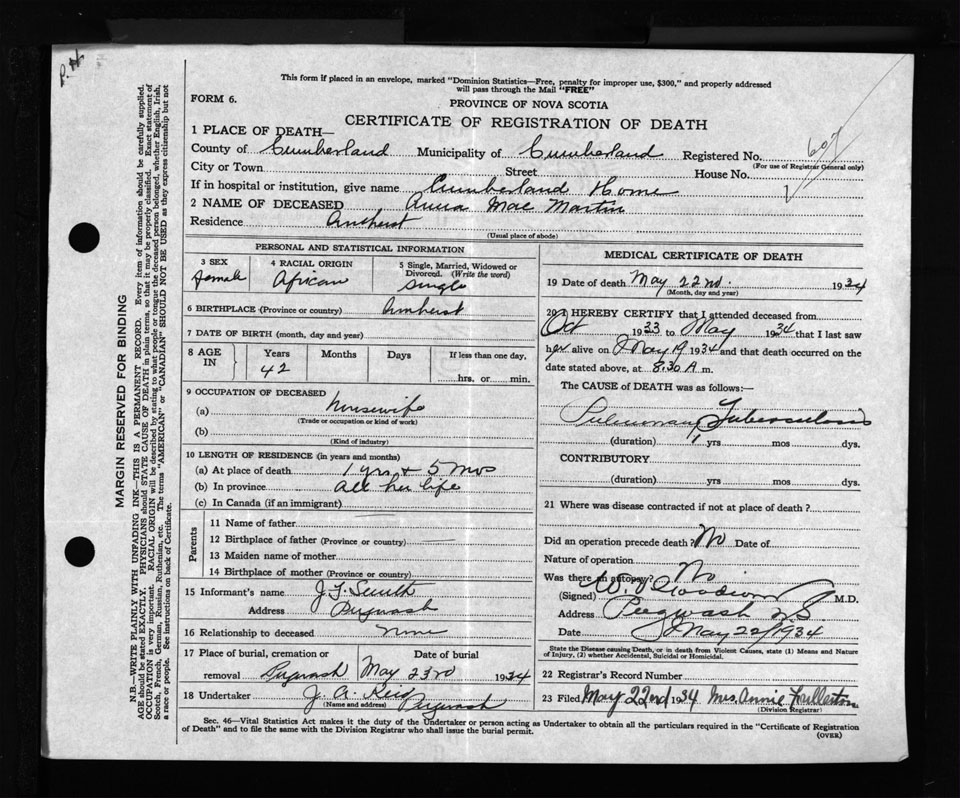 P.H.
This form if placed in an envelope, marked "Dominion Statistics—Free, penalty for improper use, $300," and properly addressed
will pass through the Mail "FREE"
FORM 6.
PROVINCE OF NOVA SCOTIA
CERTIFICATE OF REGISTRATION OF DEATH
607
1 PLACE OF DEATH—
County of Cumberland Municipality of Cumberland Registered No.
(For use of Registrar General only)
City or Town Street House No. 1
If in hospital or institution, give name Cumberland Home
2 NAME OF DECEASED Anna Mae Martin
Residence Amherst
(Usual place of abode)
PERSONAL AND STATISTICAL INFORMATION
3 SEX female
4 RACIAL ORIGIN African
5 Single, Married, Widowed or
Divorced. (Write the word)
Single
6 BIRTHPLACE (Province or country) Amherst
7 DATE OF BIRTH (month, day and year)
8 AGE IN Years Months Days If less than one day,
42 hrs. or min.
9 OCCUPATION OF DECEASED
(a) housewife
(Trade or occupation or kind of work)
(b)
(Kind of industry)
10 LENGTH OF RESIDENCE (in years and months)
(a) At place of death 1 yrs + 5 mos
(b) In province all her life
(c) In Canada (if an immigrant)
Parents
11 Name of father
12 Birthplace of father (Province or country)
13 Maiden name of mother
14 Birthplace of mother (Province or country)
15 Informant's name J. F. Smith
Address Pugwash
16 Relationship to deceased None
17 Place of burial, cremation or Date of burial
removal Pugwash May 23rd 1934
18 Undertaker J. A. Reid
(Name and address) Pugwash
MEDICAL CERTIFICATE OF DEATH
19 Date of death May 22nd. 1934
(Month, day and year)
20 I HEREBY CERTIFY that I attended deceased from
Oct 1933 to May 1934 that I last saw
her alive on May 19 1934 and that death occurred on the
date stated above, at 8.30 A m.
The CAUSE OF DEATH was as follows:—
Pulmonary Tuberculosis
(duration) 1 yrs mos dys.
CONTRIBUTORY
(duration) yrs mos dys.
21 Where was disease contracted if not at place of death ?
Did an operation precede death? No Date of
Nature of operation
Was there an autopsy? No
(Signed) M.D.
Address Pugwash NS
Date May 22/1934
State the Disease causing Death, or in death from Violent Causes, state (1) Means and Nature
of Injury, (2) whether Accidental, Suicidal or Homicidal.
22 Registrar's Record Number
23 Filed May 22nd 1934 Mrs. Annie Fullerton
(Division Registrar)
Sec. 46—Vital Statistics Act makes it the duty of the Undertaker or person acting as Undertaker to obtain all the particulars required in the "Certificate of Registration
of Death" and to file the same with the Division Registrar who shall issue the burial permit.
(OVER)
MARGIN RESERVED FOR BINDING
N.B.—WRITE PLAINLY WITH UNFADING INK—THIS IS A PERMANENT RECORD. Every item of information should be carefully supplied.
AGE should be stated EXACTLY. PHYSICIANS should STATE CAUSE OF DEATH in plain terms, so that it may be properly classified. Exact statement of
OCCUPATION is very important. RACIAL ORIGIN will be described by stating to what people or tongue the deceased person belonged, whether English, Irish,
Scotch, French, German, Russian, Ruthenian, etc. The terms "AMERICAN" or "CANADIAN" SHOULD NOT BE USED as they express citizenship but not
a race or people. See instructions on back of Certificate.